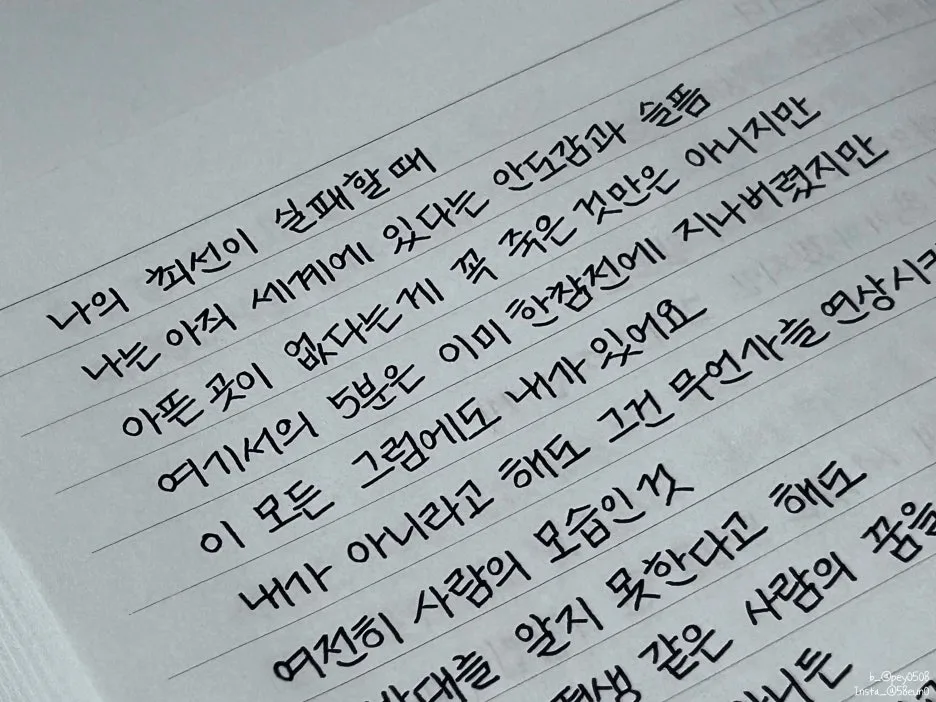 나의 최선이 실패할 때
나는 아직 세계에 있다는 안도감과 슬픔
아픈 곳이 없다는게 꼭 죽은 것만은 아니지만
여기서의 5분은 이미 한참전에 지나버렸지만
이 모든 그럼에도 내가 있어요
내가 아니라고 해도 그건 무언가를 연상시키
여전히 사람의 모습인 것
상대를 알지 못한다고 해도
평생 같은 사람의 꿈을
아니든
b_@pey0508
Insta_@58eun0